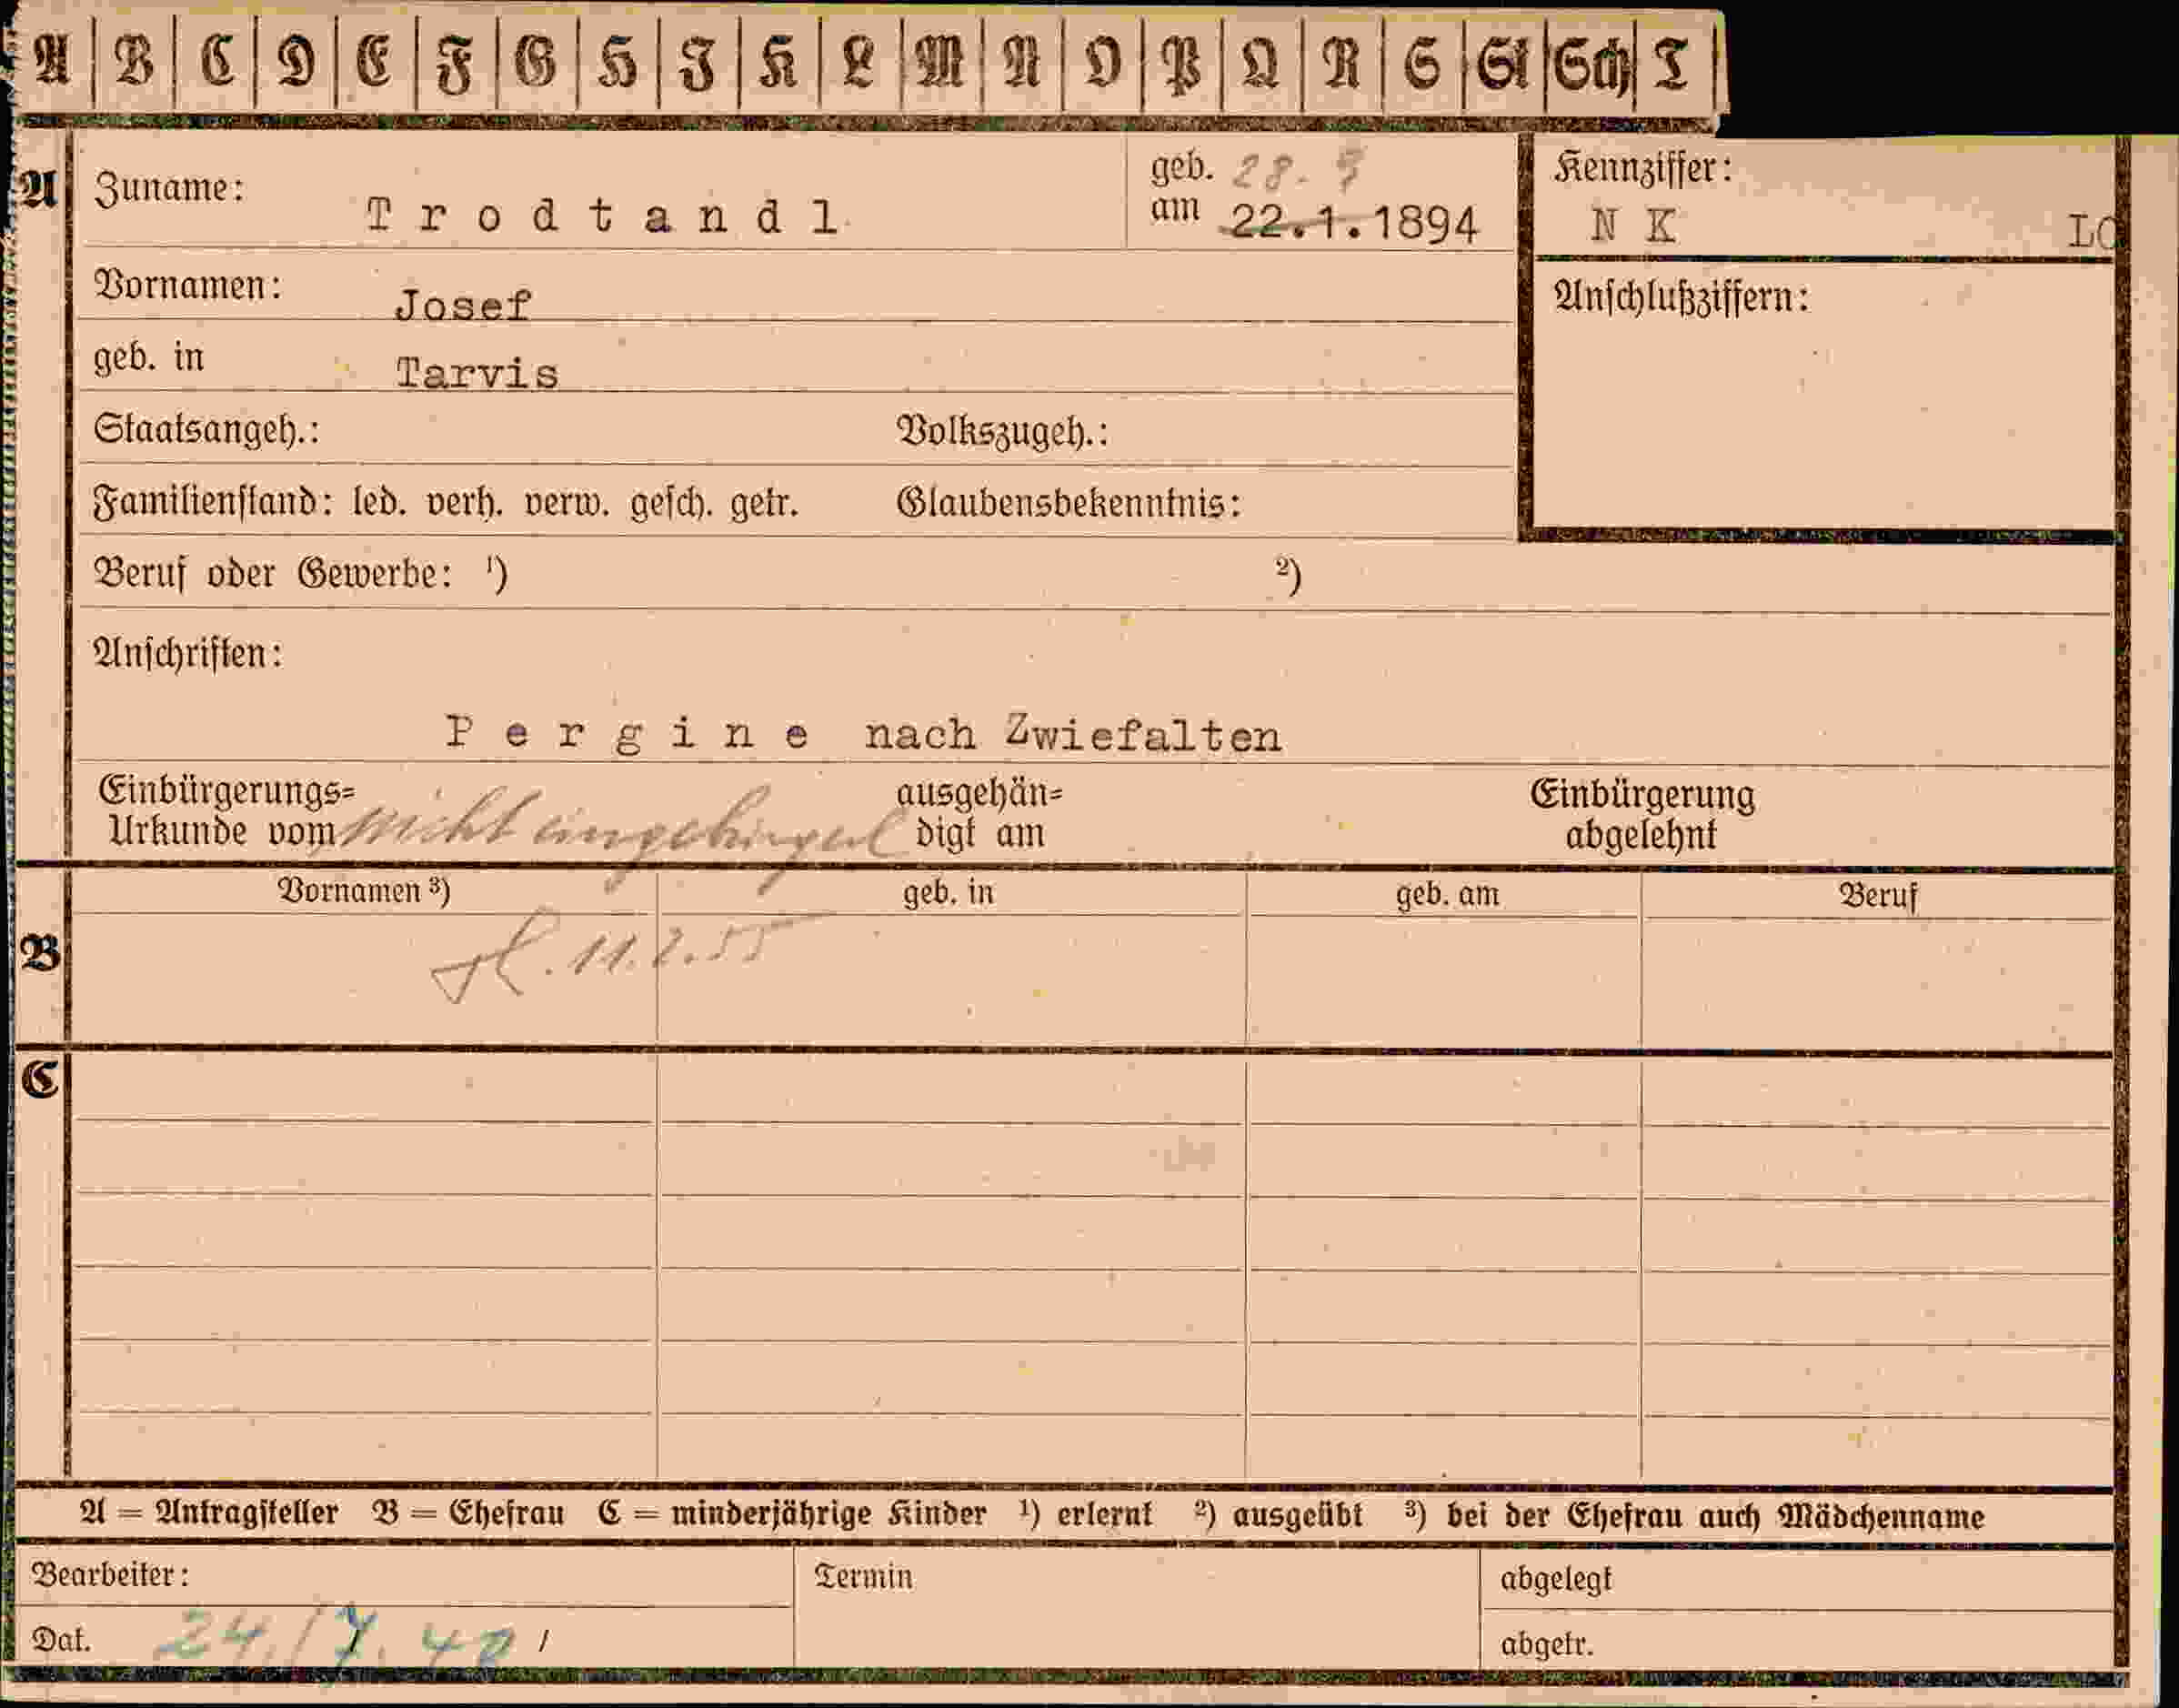 A B C D E F G H I K L M N O P Q R S St Sch T
A Zuname: Trodtandl geb. am 28. 22.1.1894
Kennziffer: N K
Vornamen: Josef
Anschlußziffern:
geb. in Tarvis
Staatsangeh.: Volkszugeh.:
Familienstand: led. verh. verw. gesch. getr. Glaubensbekenntnis:
Beruf oder Gewerbe: ¹) ²)
Anschriften:
Pergine nach Zwiefalten
Einbürgerungs= ausgehän= Einbürgerung
Urkunde vom nicht eingebürgert digt am abgelehnt
Vornamen ³) geb. in geb. am Beruf
B 11.2.55
C
A = Antragsteller B = Ehefrau C = minderjährige Kinder ¹) erlernt ²) ausgeübt ³) bei der Ehefrau auch Mädchenname
Bearbeiter: Termin abgelegt
Dat. 24./7. abgetr.